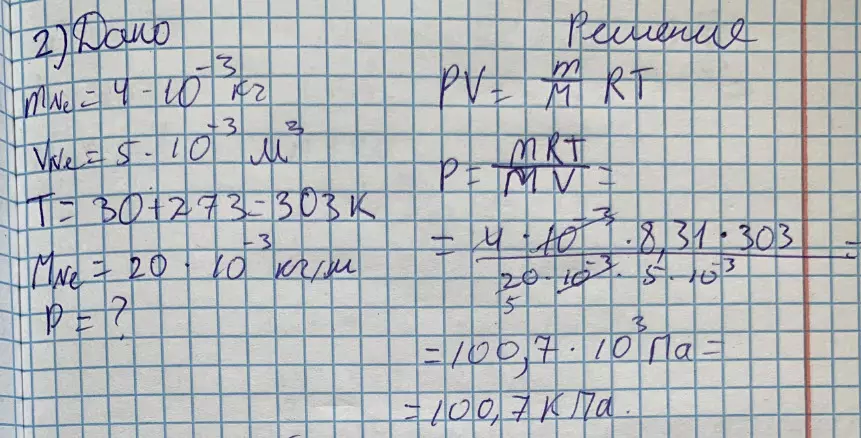 2) Дано
m Ne = 4 · 10⁻³ кг
V Ne = 5 · 10⁻³ м³
T = 30 + 273 = 303 К
M Ne = 20 · 10⁻³ кг/м
P = ?
Решение
PV = m/M RT
P = mRT/MV =
= 4 · 10⁻³ · 8,31 · 303 / 20 · 10⁻³ · 5 · 10⁻³ =
5
= 100,7 · 10³ Па =
= 100,7 КПа.